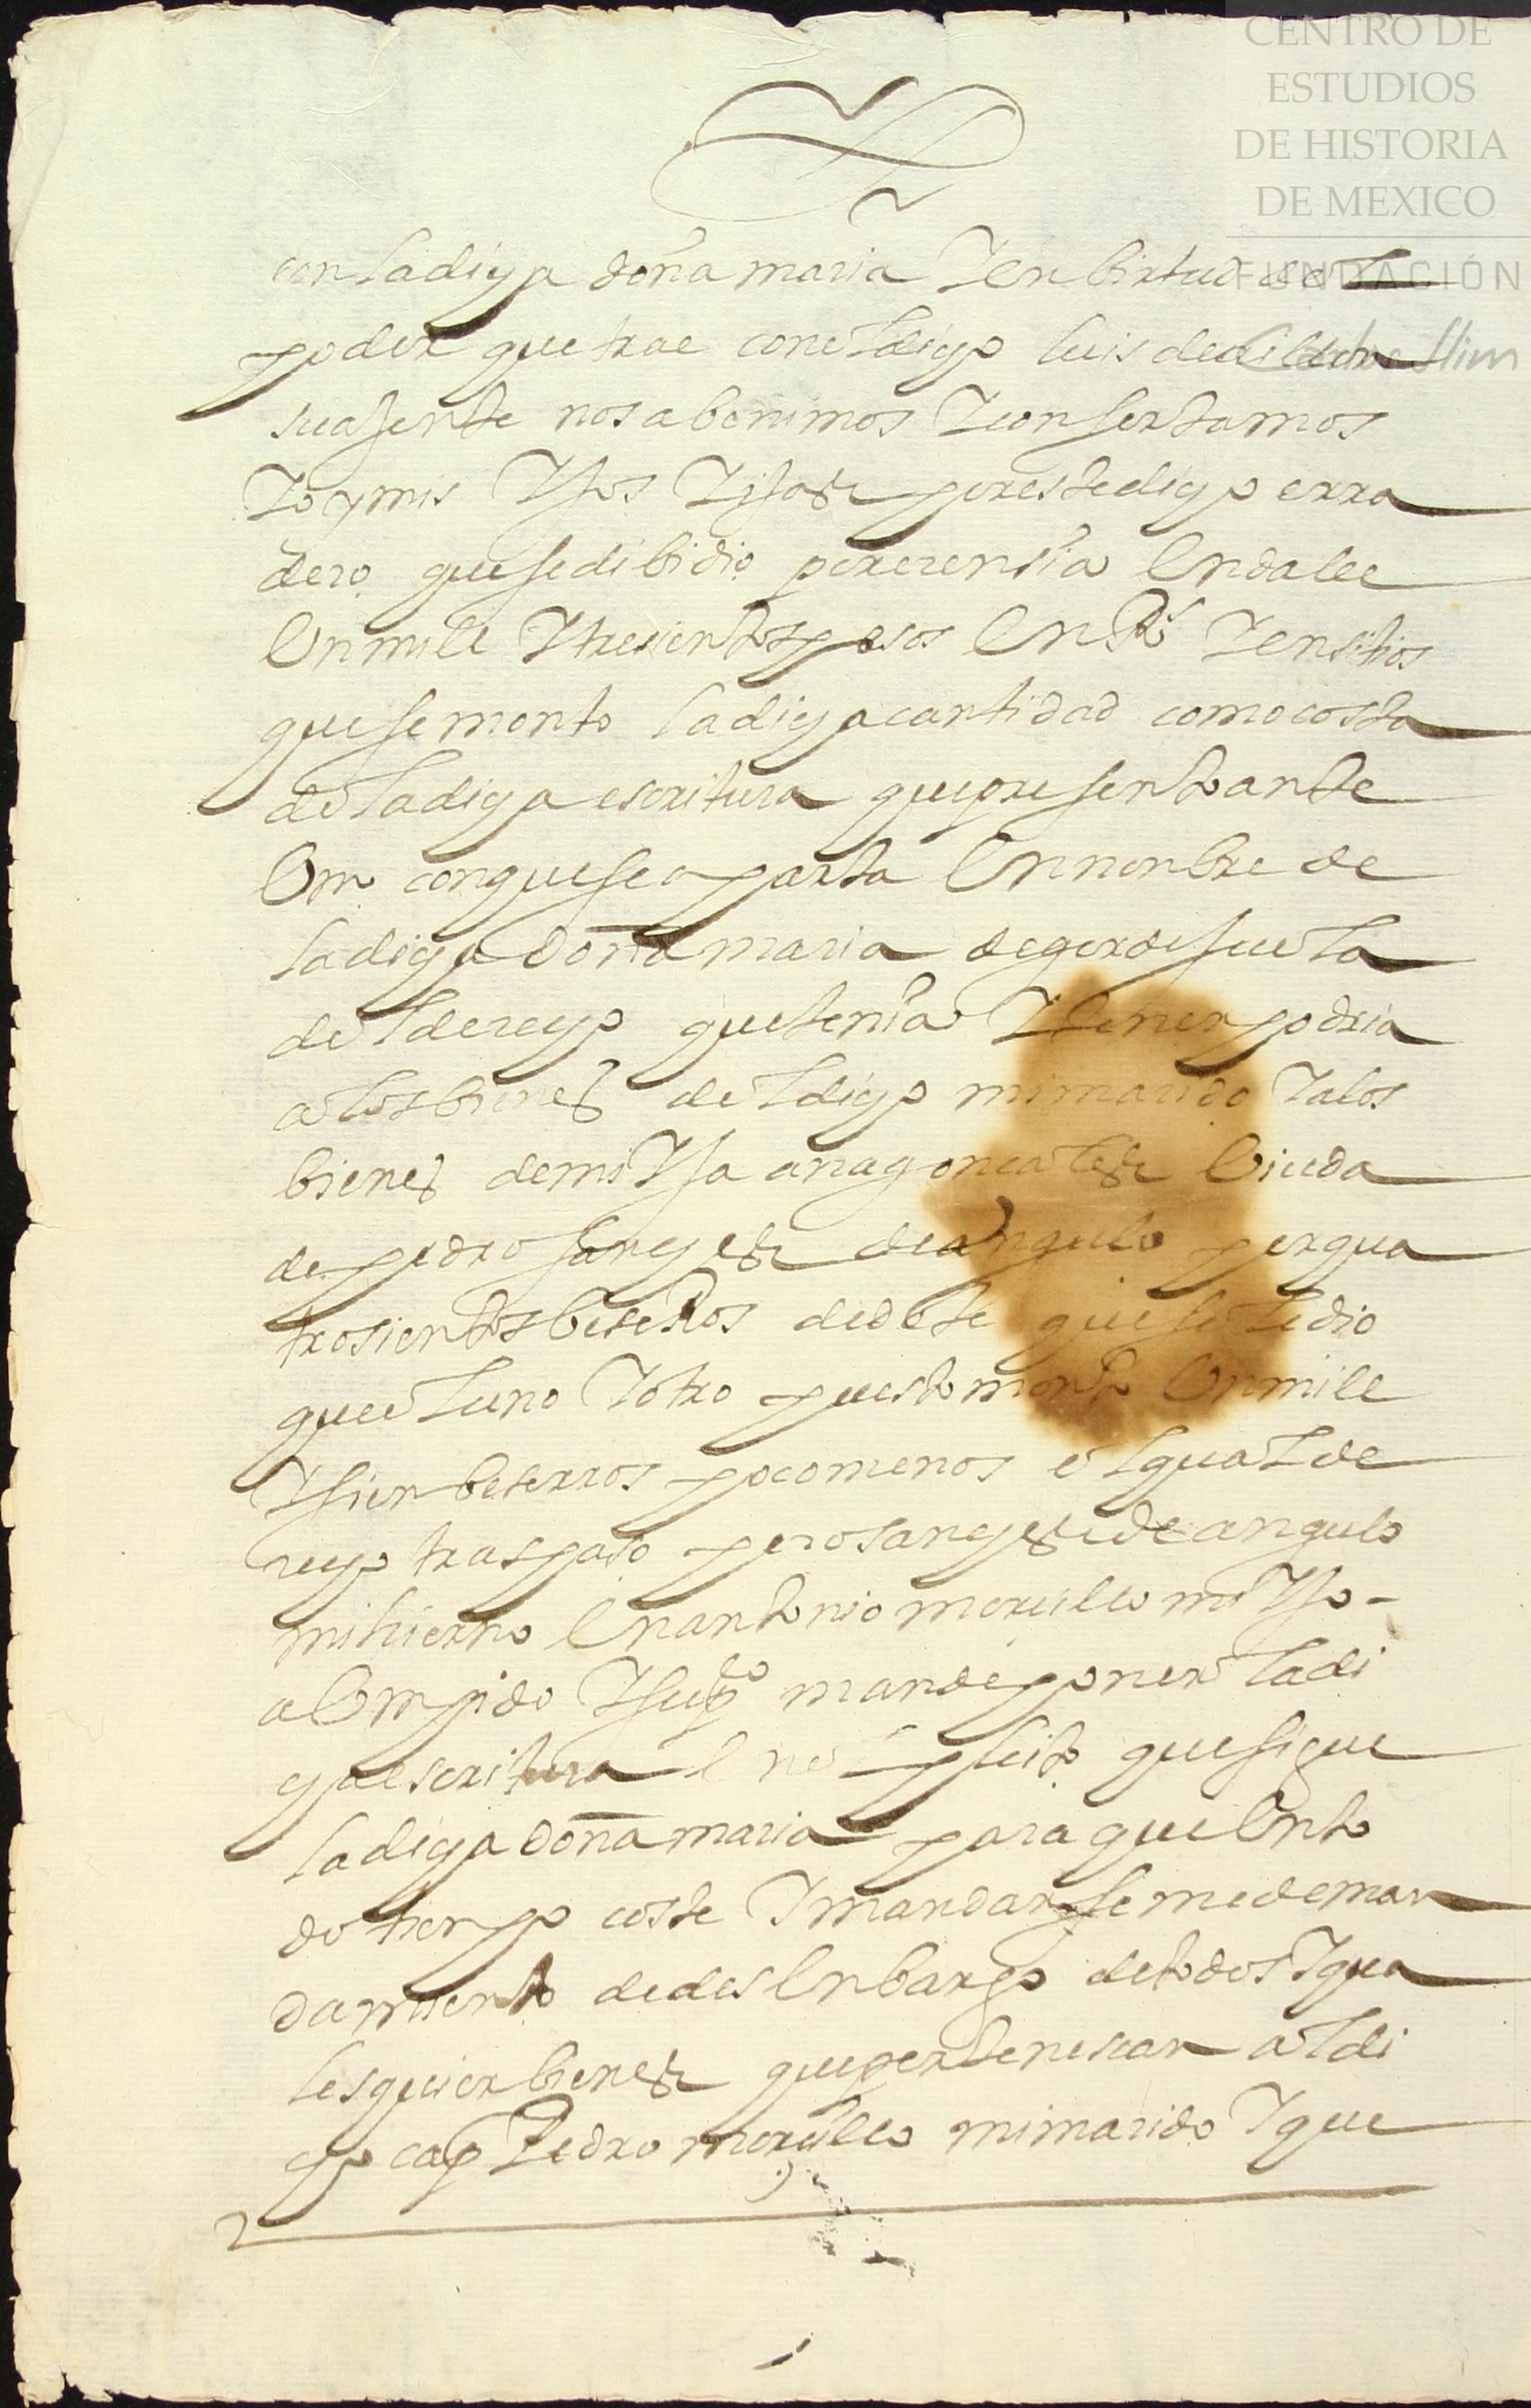 CENTRO DE
ESTUDIOS
DE HISTORIA
DE MEXICO
FUNDACIÓN
con la dicha doña maria Y en birtud del
poder que trae con el dicho luis de
su asente nos abenimos Y consertamos
Yo y mis Yjos Yjas por este dicho erra
dero que se dibidio por erensia En dalle
En mill Y tresientos pesos En Rs Y en sitios
que se monto la dicha cantidad como costa
de la dicha escritura que presento ante
Vm con que se aparta En nonbre de
la dicha doña maria de qerdesuela
del derecho que tenia Y tener podria
a los bienes del dicho mi marido Y a los
bienes de mi Yja ana gonsales biuda
de pedro sanches de angulo por qua
trosientos beserros de dote que se le dio
que el uno Y otro puesto monto En mill
Y sien beserros poco menos el qual de
recho traspaso pero sanches de angulo
mi hierno En antonio morillo mi Yjo -
a Vm pido Y supco mande poner la di
cha escritura En el pleito que sigue
la dicha doña maria para que En to
do tienpo coste Y mandar se me de man
damiento de desEnbargo de todos Y qua
lesquier bienes que pertenescan al di
cho cap Pedro morillo mi marido Y que